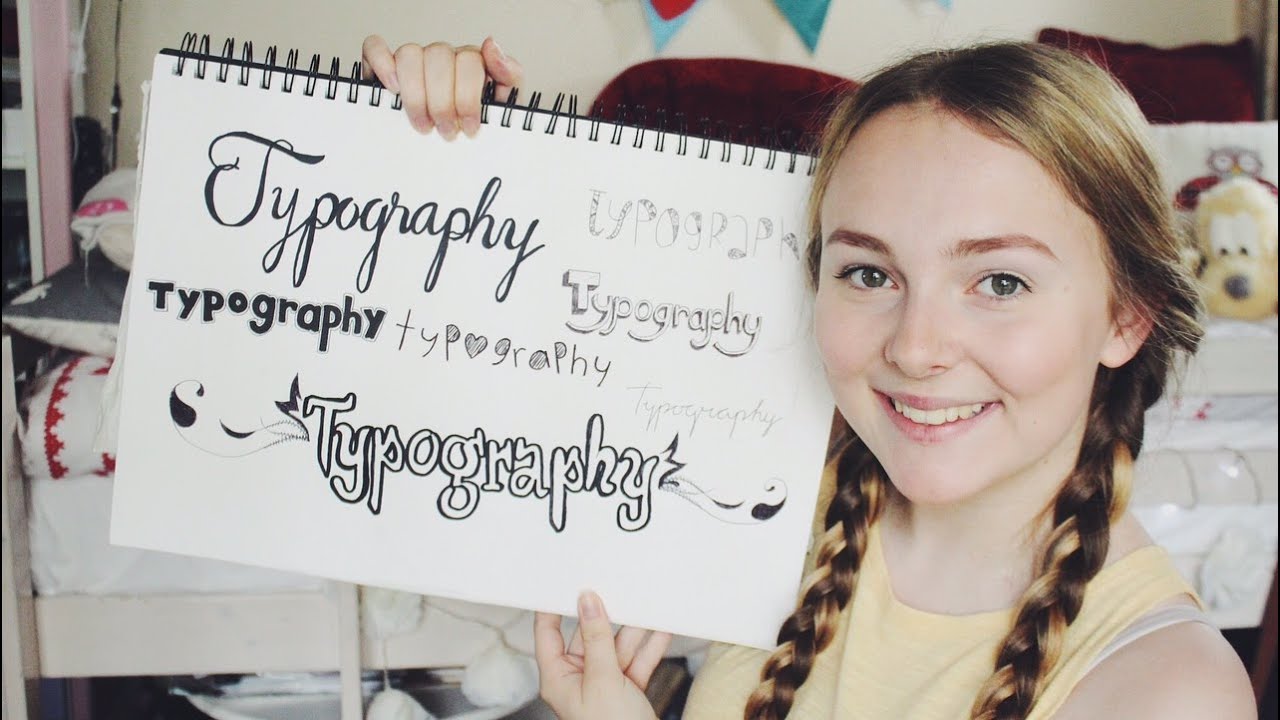 Typography
tYPOGRAPh
Typography
Typography
typ♥graphy
Typography
Typography